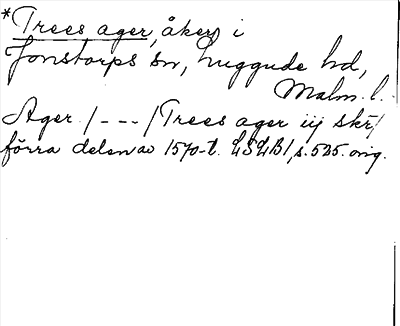 *Trees ager, åker, i
Jonstorps sn, Luggude hd,
Malm. l.
Ager /---/ Trees ager iij skr/
förra delen av 1570-t. LSLB1, s. 525. orig.